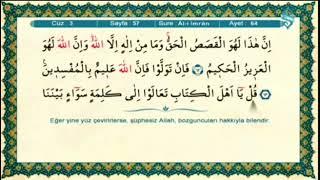 Cüz : 3 Sayfa : 57 Sure : Âl-i İmrân Ayet : 64
اِنَّ هٰذَا لَهُوَ الْقَصَصُ الْحَقُّۚ وَمَا مِنْ اِلٰهٍ اِلَّا اللّٰهُۜ وَاِنَّ اللّٰهَ لَهُوَ
الْعَز۪يزُ الْحَك۪يمُ فَاِنْ تَوَلَّوْا فَاِنَّ اللّٰهَ عَل۪يمٌ بِالْمُفْسِد۪ينَ۟
قُلْ يَٓا اَهْلَ الْكِتَابِ تَعَالَوْا اِلٰى كَلِمَةٍ سَوَٓاءٍ بَيْنَنَا
Eğer yine yüz çevirirlerse, şüphesiz Allah, bozguncuları hakkıyla bilendir.